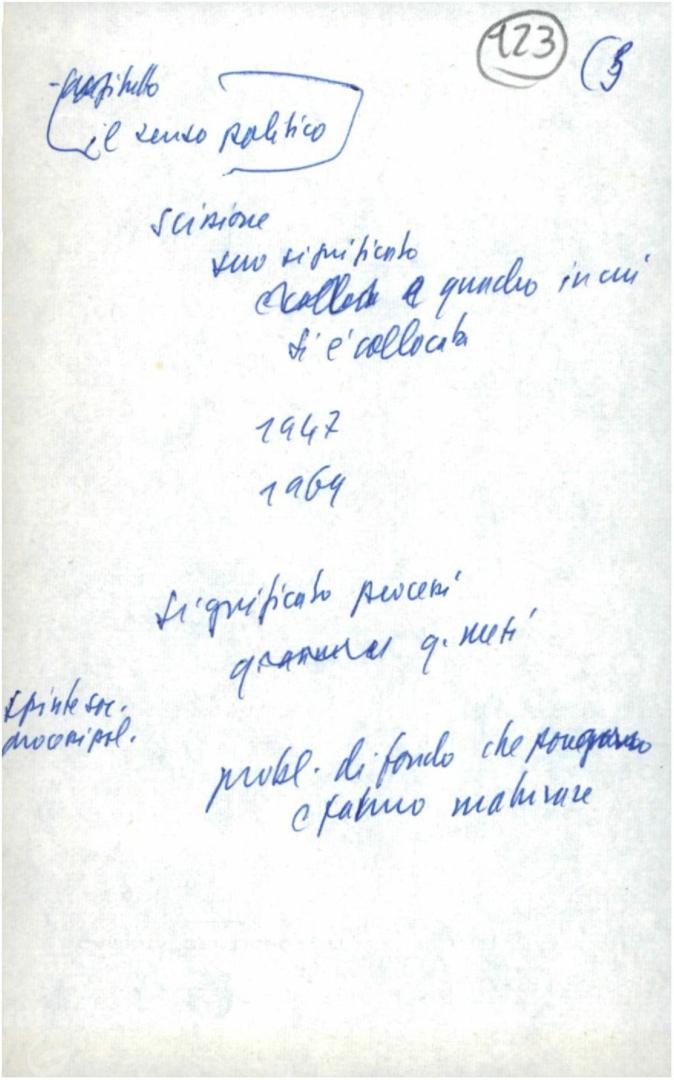 123 (3
il senso politico
scissione
suo significato
e quadro in cui
si è collocata
1947
1964
significato processi
q. mesi
spinte soc.
processi pol.
probl. di fondo che pongono
e fanno maturare